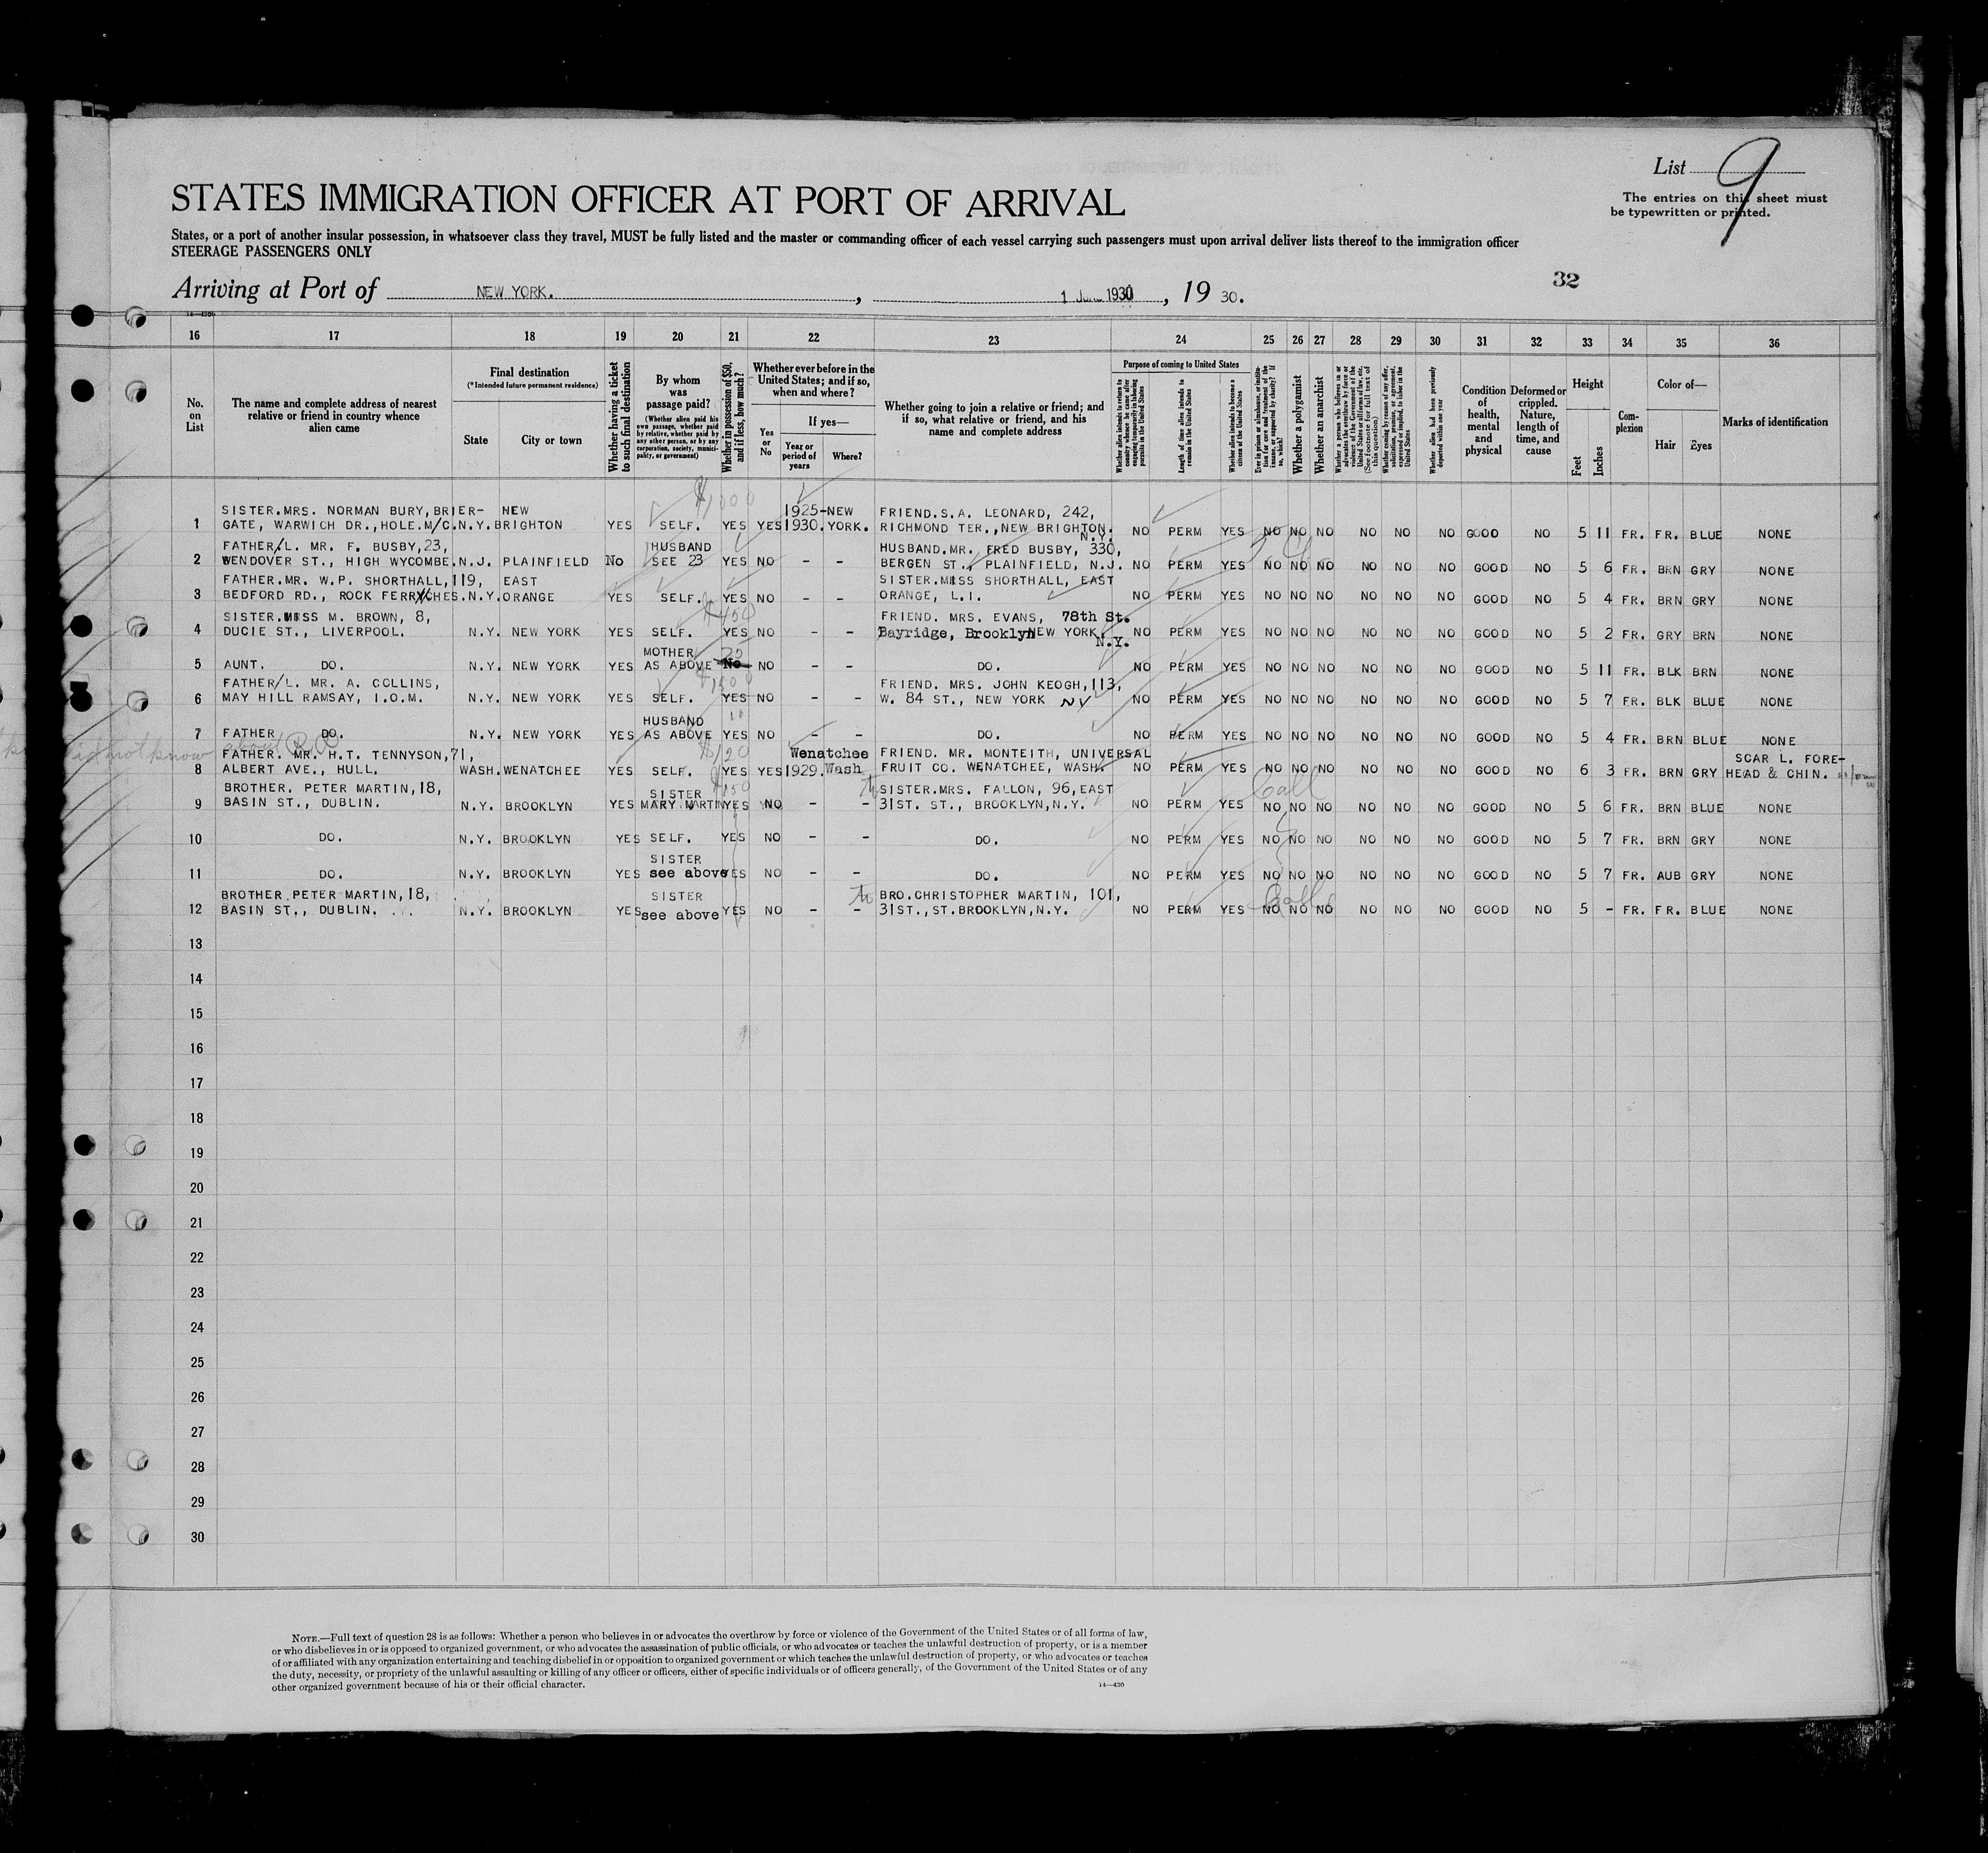 List 9
The entries on this sheet must
be typewritten or printed.
STATES IMMIGRATION OFFICER AT PORT OF ARRIVAL
States, or a port of another insular possession, in whatsoever class they travel, MUST be fully listed and the master or commanding officer of each vessel carrying such passengers must upon arrival deliver lists thereof to the immigration officer
STEERAGE PASSENGERS ONLY
32
Arriving at Port of NEW YORK. , 1 1930 , 19 30.
16 17 18 19 20 21 22 23 24 25 26 27 28 29 30 31 32 33 34 35 36
No. on List
The name and complete address of nearest relative or friend in country whence alien came
Final destination
(*Intended future permanent residence)
State
City or town
Whether having a ticket to such final destination
By whom was passage paid?
(Whether alien paid his own passage, whether paid by relative, whether paid by any other person, or by any corporation, society, municipality, or government)
Whether in possession of $50, and if less, how much?
Whether ever before in the United States; and if so, when and where?
Yes or No
If yes—
Year or period of years
Where?
Whether going to join a relative or friend; and if so, what relative or friend, and his name and complete address
Purpose of coming to United States
Whether alien intends to return to country whence he came after engaging temporarily in laboring pursuits in the United States
Length of time alien intends to remain in the United States
Whether alien intends to become a citizen of the United States
Ever in prison or almshouse, or institution for care and treatment of the insane, or supported by charity? If so, which?
Whether a polygamist
Whether an anarchist
Whether a person who believes in or advocates the overthrow by force or violence of the Government of the United States or all forms of law, etc. (See footnote for full text of this question)
Whether coming by reason of any offer, solicitation, promise, or agreement, expressed or implied, to labor in the United States
Whether alien had been previously deported within one year
Condition of health, mental and physical
Deformed or crippled. Nature, length of time, and cause
Height
Feet
Inches
Complexion
Color of—
Hair
Eyes
Marks of identification
$1000
SISTER.MRS. NORMAN BURY, BRIER- NEW 1925- NEW FRIEND.S.A. LEONARD, 242,
1 GATE, WARWICH DR.,HOLE.M/C. N.Y. BRIGHTON YES SELF. YES YES 1930. YORK. RICHMOND TER.,NEW BRIGHTON. N.Y. NO PERM YES NO NO NO NO NO NO GOOD NO 5 11 FR. FR. BLUE NONE
FATHER/L. MR. F. BUSBY,23, HUSBAND HUSBAND.MR. FRED BUSBY, 330,
2 WENDOVER ST., HIGH WYCOMBE. N.J. PLAINFIELD No SEE 23 YES NO - - BERGEN ST., PLAINFIELD, N.J. NO PERM YES NO NO NO NO NO NO GOOD NO 5 6 FR. BRN GRY NONE
FATHER.MR. W.P. SHORTHALL,119, EAST SISTER.MISS SHORTHALL, EAST
3 BEDFORD RD., ROCK FERRY CHES. N.Y. ORANGE YES SELF. YES NO - - ORANGE, L.I. NO PERM YES NO NO NO NO NO NO GOOD NO 5 4 FR. BRN GRY NONE
SISTER.MISS M. BROWN, 8, $450 FRIEND. MRS. EVANS, 78th St.
4 DUCIE ST., LIVERPOOL. N.Y. NEW YORK YES SELF. YES NO - - Bayridge, Brooklyn NEW YORK. N.Y. NO PERM YES NO NO NO NO NO NO GOOD NO 5 2 FR. GRY BRN NONE
MOTHER 25
5 AUNT. DO. N.Y. NEW YORK YES AS ABOVE No NO - - DO. NO PERM YES NO NO NO NO NO NO GOOD NO 5 11 FR. BLK BRN NONE
FATHER/L. MR. A. COLLINS, FRIEND. MRS. JOHN KEOGH,113,
6 MAY HILL RAMSAY, I.O.M. N.Y. NEW YORK YES SELF. YES NO - - W. 84 ST., NEW YORK NY NO PERM YES NO NO NO NO NO NO GOOD NO 5 7 FR. BLK BLUE NONE
HUSBAND
7 FATHER DO. N.Y. NEW YORK YES AS ABOVE YES NO - - DO. NO PERM YES NO NO NO NO NO NO GOOD NO 5 4 FR. BRN BLUE NONE
did not know about
FATHER. MR. H.T. TENNYSON,71, $120 Wenatchee FRIEND. MR. MONTEITH, UNIVERSAL SCAR L. FORE-
8 ALBERT AVE., HULL. WASH. WENATCHEE YES SELF. YES YES 1929. Wash FRUIT CO. WENATCHEE, WASH. NO PERM YES NO NO NO NO NO NO GOOD NO 6 3 FR. BRN GRY HEAD & CHIN.
BROTHER. PETER MARTIN,18, SISTER $150 SISTER.MRS. FALLON, 96,EAST
9 BASIN ST., DUBLIN. N.Y. BROOKLYN YES MARY MARTIN YES NO - - 31ST. ST., BROOKLYN,N.Y. NO PERM YES NO NO NO NO NO NO GOOD NO 5 6 FR. BRN BLUE NONE
10 DO. N.Y. BROOKLYN YES SELF. YES NO - - DO. NO PERM YES NO NO NO NO NO NO GOOD NO 5 7 FR. BRN GRY NONE
SISTER
11 DO. N.Y. BROOKLYN YES see above YES NO - - DO. NO PERM YES NO NO NO NO NO NO GOOD NO 5 7 FR. AUB GRY NONE
BROTHER PETER MARTIN,18, SISTER BRO.CHRISTOPHER MARTIN, 101,
12 BASIN ST., DUBLIN. N.Y. BROOKLYN YES see above YES NO - - 31ST.,ST.BROOKLYN,N.Y. NO PERM YES NO NO NO NO NO NO GOOD NO 5 - FR. FR. BLUE NONE
13
14
15
16
17
18
19
20
21
22
23
24
25
26
27
28
29
30
NOTE.—Full text of question 28 is as follows: Whether a person who believes in or advocates the overthrow by force or violence of the Government of the United States or of all forms of law,
or who disbelieves in or is opposed to organized government, or who advocates the assassination of public officials, or who advocates or teaches the unlawful destruction of property, or is a member
of or affiliated with any organization entertaining and teaching disbelief in or opposition to organized government or which teaches the unlawful destruction of property, or who advocates or teaches
the duty, necessity, or propriety of the unlawful assaulting or killing of any officer or officers, either of specific individuals or of officers generally, of the Government of the United States or of any
other organized government because of his or their official character.
14—430